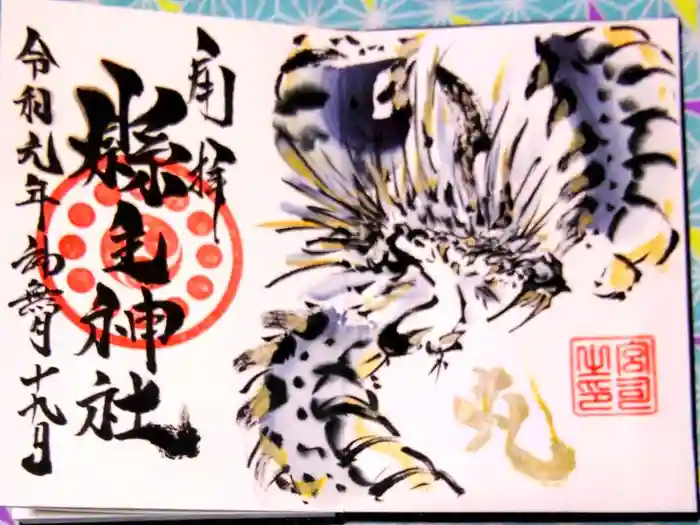 拝
縣主神社
令和元年神無月十九日
宮司之印